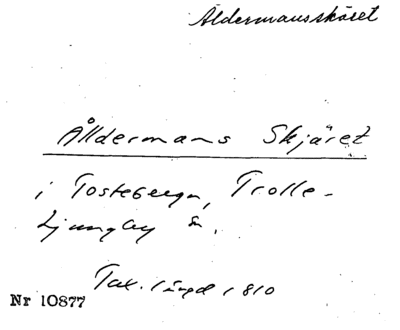 Åldermansskäret
Ålldermans Skjäret
i Tosteberga, Trolle-
Ljungby sn.
Tax. längd 1810
Nr 10877